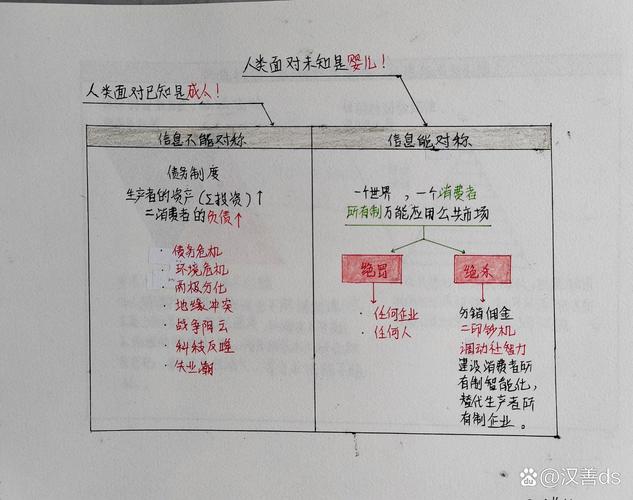 人类面对未知是婴儿！
人类面对已知是成人！
信息不能对称
信息能对称
债务制度
生产者的资产（Σ投资）↑
=消费者的负债↑
· 债务危机
· 环境危机
· 两极分化
· 地缘冲突
· 战争阴云
· 科技反噬
· 失业潮
一个世界，一个消费者
所有制万能应用公共市场
绝冒
绝杀
· 任何企业
· 任何人
分销佣金
=印钞机
调动社智力
建设消费者所
有制智能化，
替代生产者所
有制企业。
汉善ds